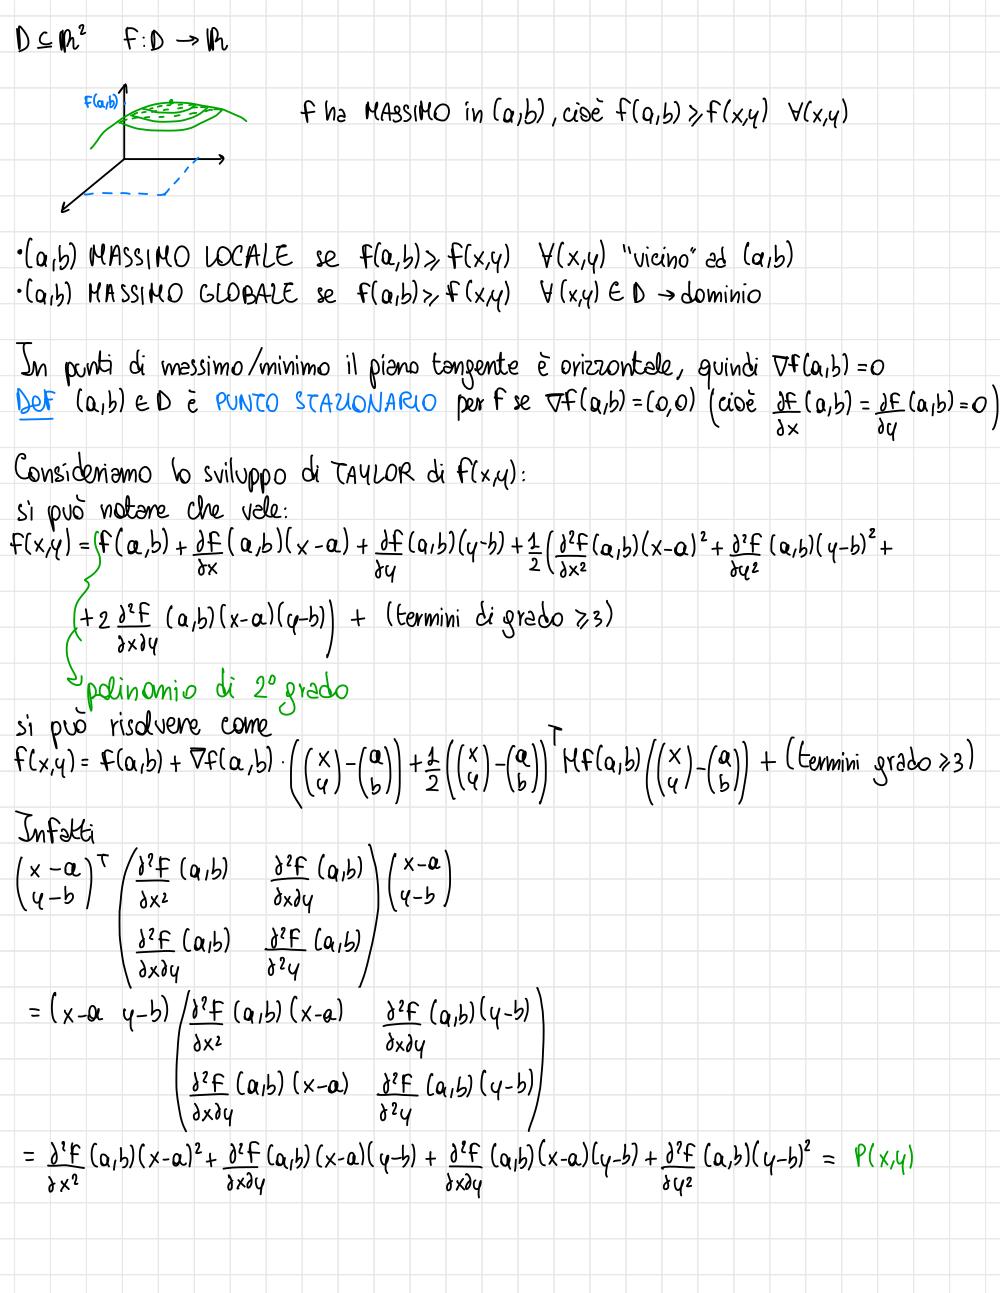 D ⊆ ℝ² f: D → ℝ
f(a,b)
f ha MASSIMO in (a,b), cioè f(a,b) ⩾ f(x,y) ∀(x,y)
·(a,b) MASSIMO LOCALE se f(a,b) ⩾ f(x,y) ∀(x,y) "vicino" ad (a,b)
·(a,b) MASSIMO GLOBALE se f(a,b) ⩾ f(x,y) ∀(x,y) ∈ D → dominio
In punti di massimo/minimo il piano tangente è orizzontale, quindi ∇f(a,b)=0
Def (a,b) ∈ D è PUNTO STAZIONARIO per f se ∇f(a,b)=(0,0) (cioè ∂f/∂x (a,b) = ∂f/∂y (a,b) = 0)
Consideriamo lo sviluppo di TAYLOR di f(x,y):
si può notare che vale:
f(x,y) = f(a,b) + ∂f/∂x (a,b)(x-a) + ∂f/∂y (a,b)(y-b) + 1/2 (∂²f/∂x² (a,b)(x-a)² + ∂²f/∂y² (a,b)(y-b)² +
+ 2 ∂²f/∂x∂y (a,b)(x-a)(y-b)) + (termini di grado ⩾3)
polinomio di 2° grado
si può risolvere come
f(x,y) = f(a,b) + ∇f(a,b) · ((x y) - (a b)) + 1/2 ((x y) - (a b))ᵀ Hf(a,b) ((x y) - (a b)) + (termini grado ⩾3)
Infatti
(x-a y-b)ᵀ (∂²f/∂x² (a,b) ∂²f/∂x∂y (a,b)) (x-a y-b)
∂²f/∂x∂y (a,b) ∂²f/∂²y (a,b)
= (x-a y-b) (∂²f/∂x² (a,b)(x-a) ∂²f/∂x∂y (a,b)(y-b)
∂²f/∂x∂y (a,b)(x-a) ∂²f/∂²y (a,b)(y-b))
= ∂²f/∂x² (a,b)(x-a)² + ∂²f/∂x∂y (a,b)(x-a)(y-b) + ∂²f/∂x∂y (a,b)(x-a)(y-b) + ∂²f/∂y² (a,b)(y-b)² = P(x,y)